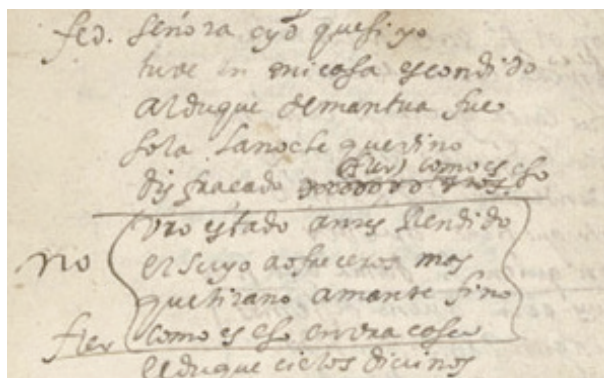 fed. señora oyd que si yo
tube in mi casa escondido
al duque de mantua fue
sola la noche que vino
(flor) como es eso
disfraçado
vro estado antes Rendido
el suyo a ofreceros mas
que tirano amante fino
no
flor como es eso en vra casa
el duque cielos divinos